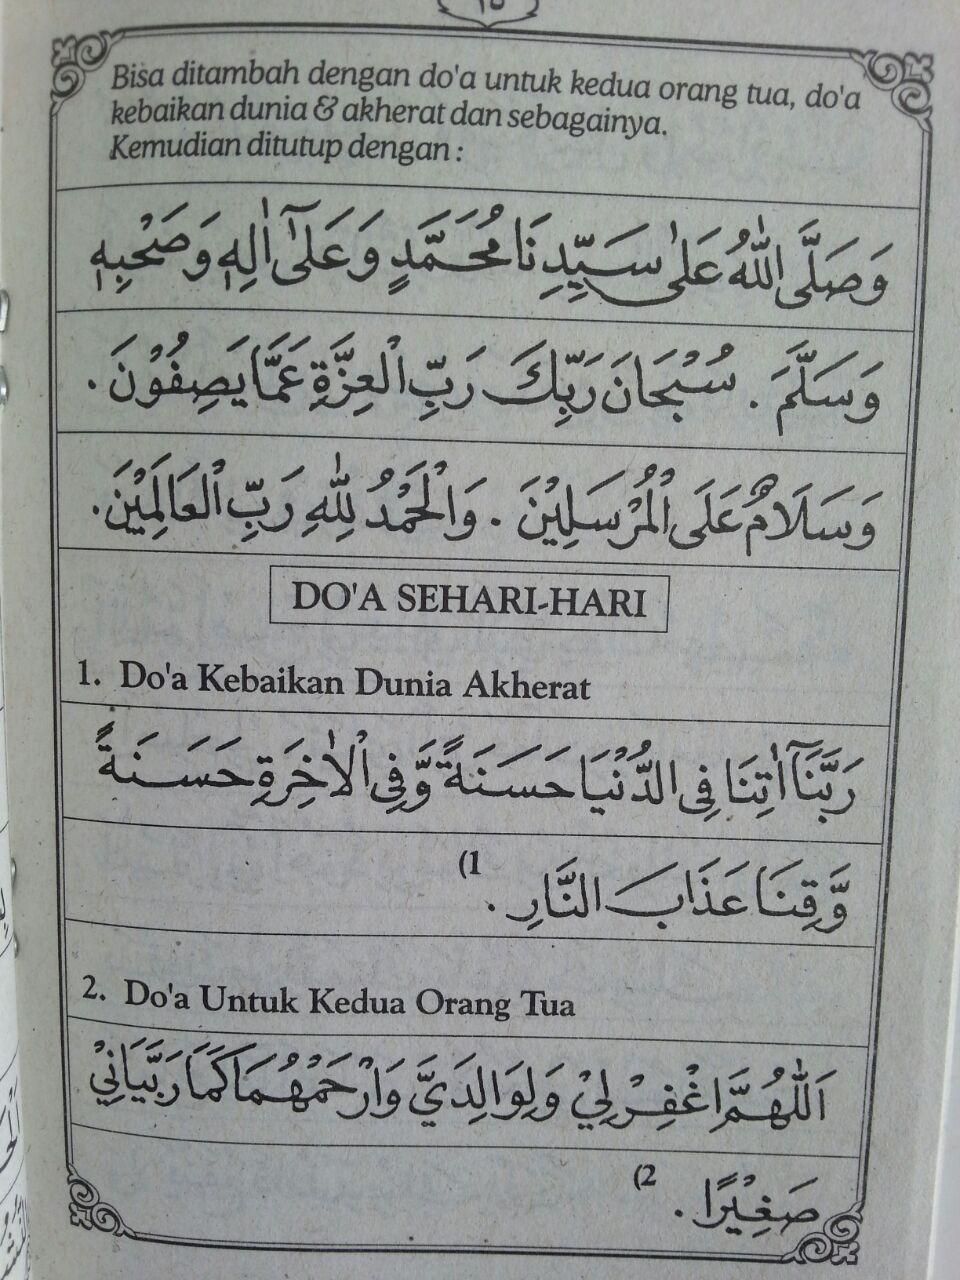 ١٥
Bisa ditambah dengan do'a untuk kedua orang tua, do'a
kebaikan dunia & akherat dan sebagainya.
Kemudian ditutup dengan :
وَصَلَّى اللّٰهُ عَلٰى سَيِّدِنَا مُحَمَّدٍ وَعَلٰٓى اٰلِهٖ وَصَحْبِهٖ
وَسَلَّمَ . سُبْحَانَ رَبِّكَ رَبِّ الْعِزَّةِ عَمَّا يَصِفُوْنَ .
وَسَلَامٌ عَلَى الْمُرْسَلِيْنَ . وَالْحَمْدُ لِلّٰهِ رَبِّ الْعَالَمِيْنَ.
DO'A SEHARI-HARI
1. Do'a Kebaikan Dunia Akherat
رَبَّنَآ اٰتِنَا فِى الدُّنْيَا حَسَنَةً وَّفِى الْاٰخِرَةِ حَسَنَةً
وَّقِنَا عَذَابَ النَّارِ . (1
2. Do'a Untuk Kedua Orang Tua
اَللّٰهُمَّ اغْفِرْ لِيْ وَلِوَالِدَيَّ وَارْحَمْهُمَا كَمَا رَبَّيَانِيْ
صَغِيْرًا . (2